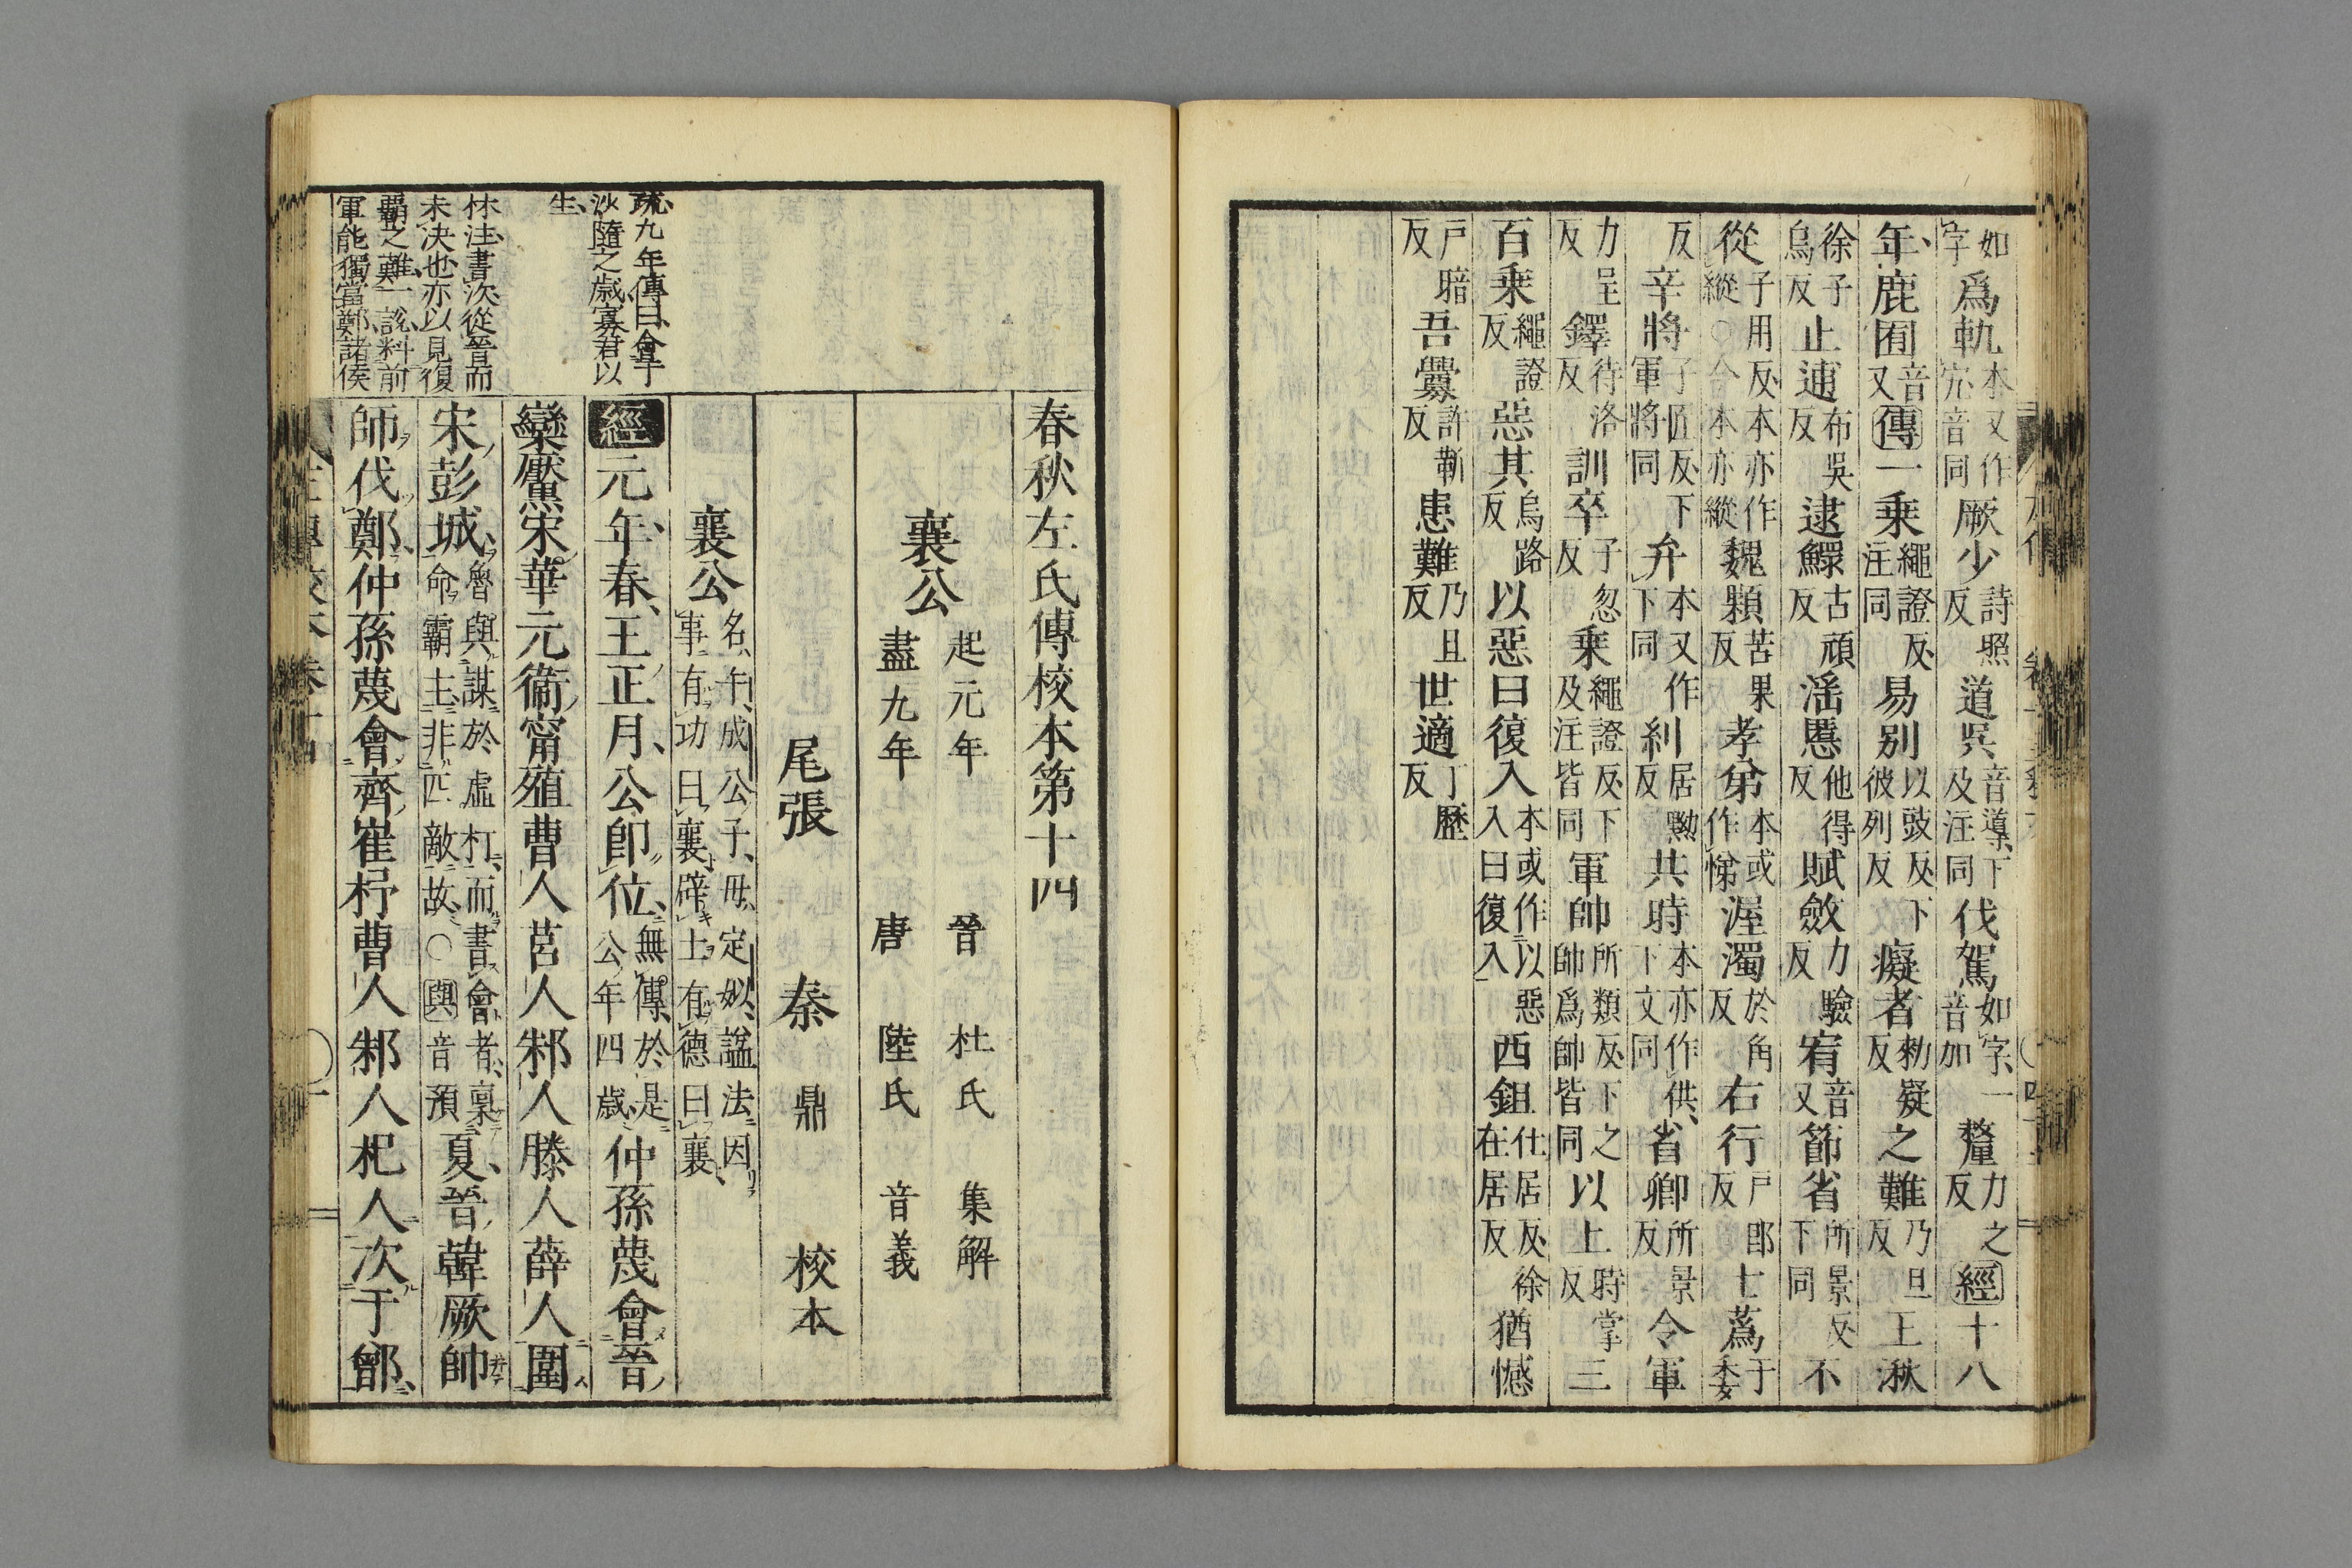 如字爲軌本又作宄音同厥少詩照反道呉音導下及注同伐駕如字一音加釐力之反經十八
年鹿囿音又傳一乗繩證反注同易別以豉反下彼列反癡者勑疑反之難乃旦反王湫
徐子烏反止逋布呉反逮鰥古頑反滛慝他得反賦斂力驗反宥音又節省所景反下同不
從子用反縱○合本亦作縱魏顆苦果反孝弟本或作悌渥濁於角反右行戸郎反士蔿于委
反辛將子匠反下軍將同弁本又作下同糾居黝反共時本亦作供下文同省卿所景反令軍
力呈反鐸待洛反訓卒子忽反乗繩證反下及注皆同軍帥所類反下之帥爲帥皆同以上時掌反三
百乗繩證反惡其烏路反以惡曰復入本或作以惡入曰復入西鉏仕居反徐在居反猶憾
戸暗反吾釁許靳反患難乃且反世適丁歷反
春秋左氏傳校本第十四
襄公起元年盡九年 晉 杜氏 集解 唐 陸氏 音義
尾張 秦 鼎 校本
襄公名午成公子母定姒謚法因事有功曰襄辟土有德曰襄
經元年春王正月公卽位無傳於是公年四歳仲孫蔑會晉
欒黶宋華元衞甯殖曹人莒人邾人滕人薛人圍
宋彭城魯與謀於虛朾而書會者稟命霸主非匹敵故○與音預夏晉韓厥帥
師伐鄭仲孫蔑會齊崔杼曹人邾人杞人次于鄫
疏九年傳曰會于
沙隨之歳寡君以
生
林注書次從晉而
未決也亦以見復
霸之難一說料前
軍能獨當鄭諸侯